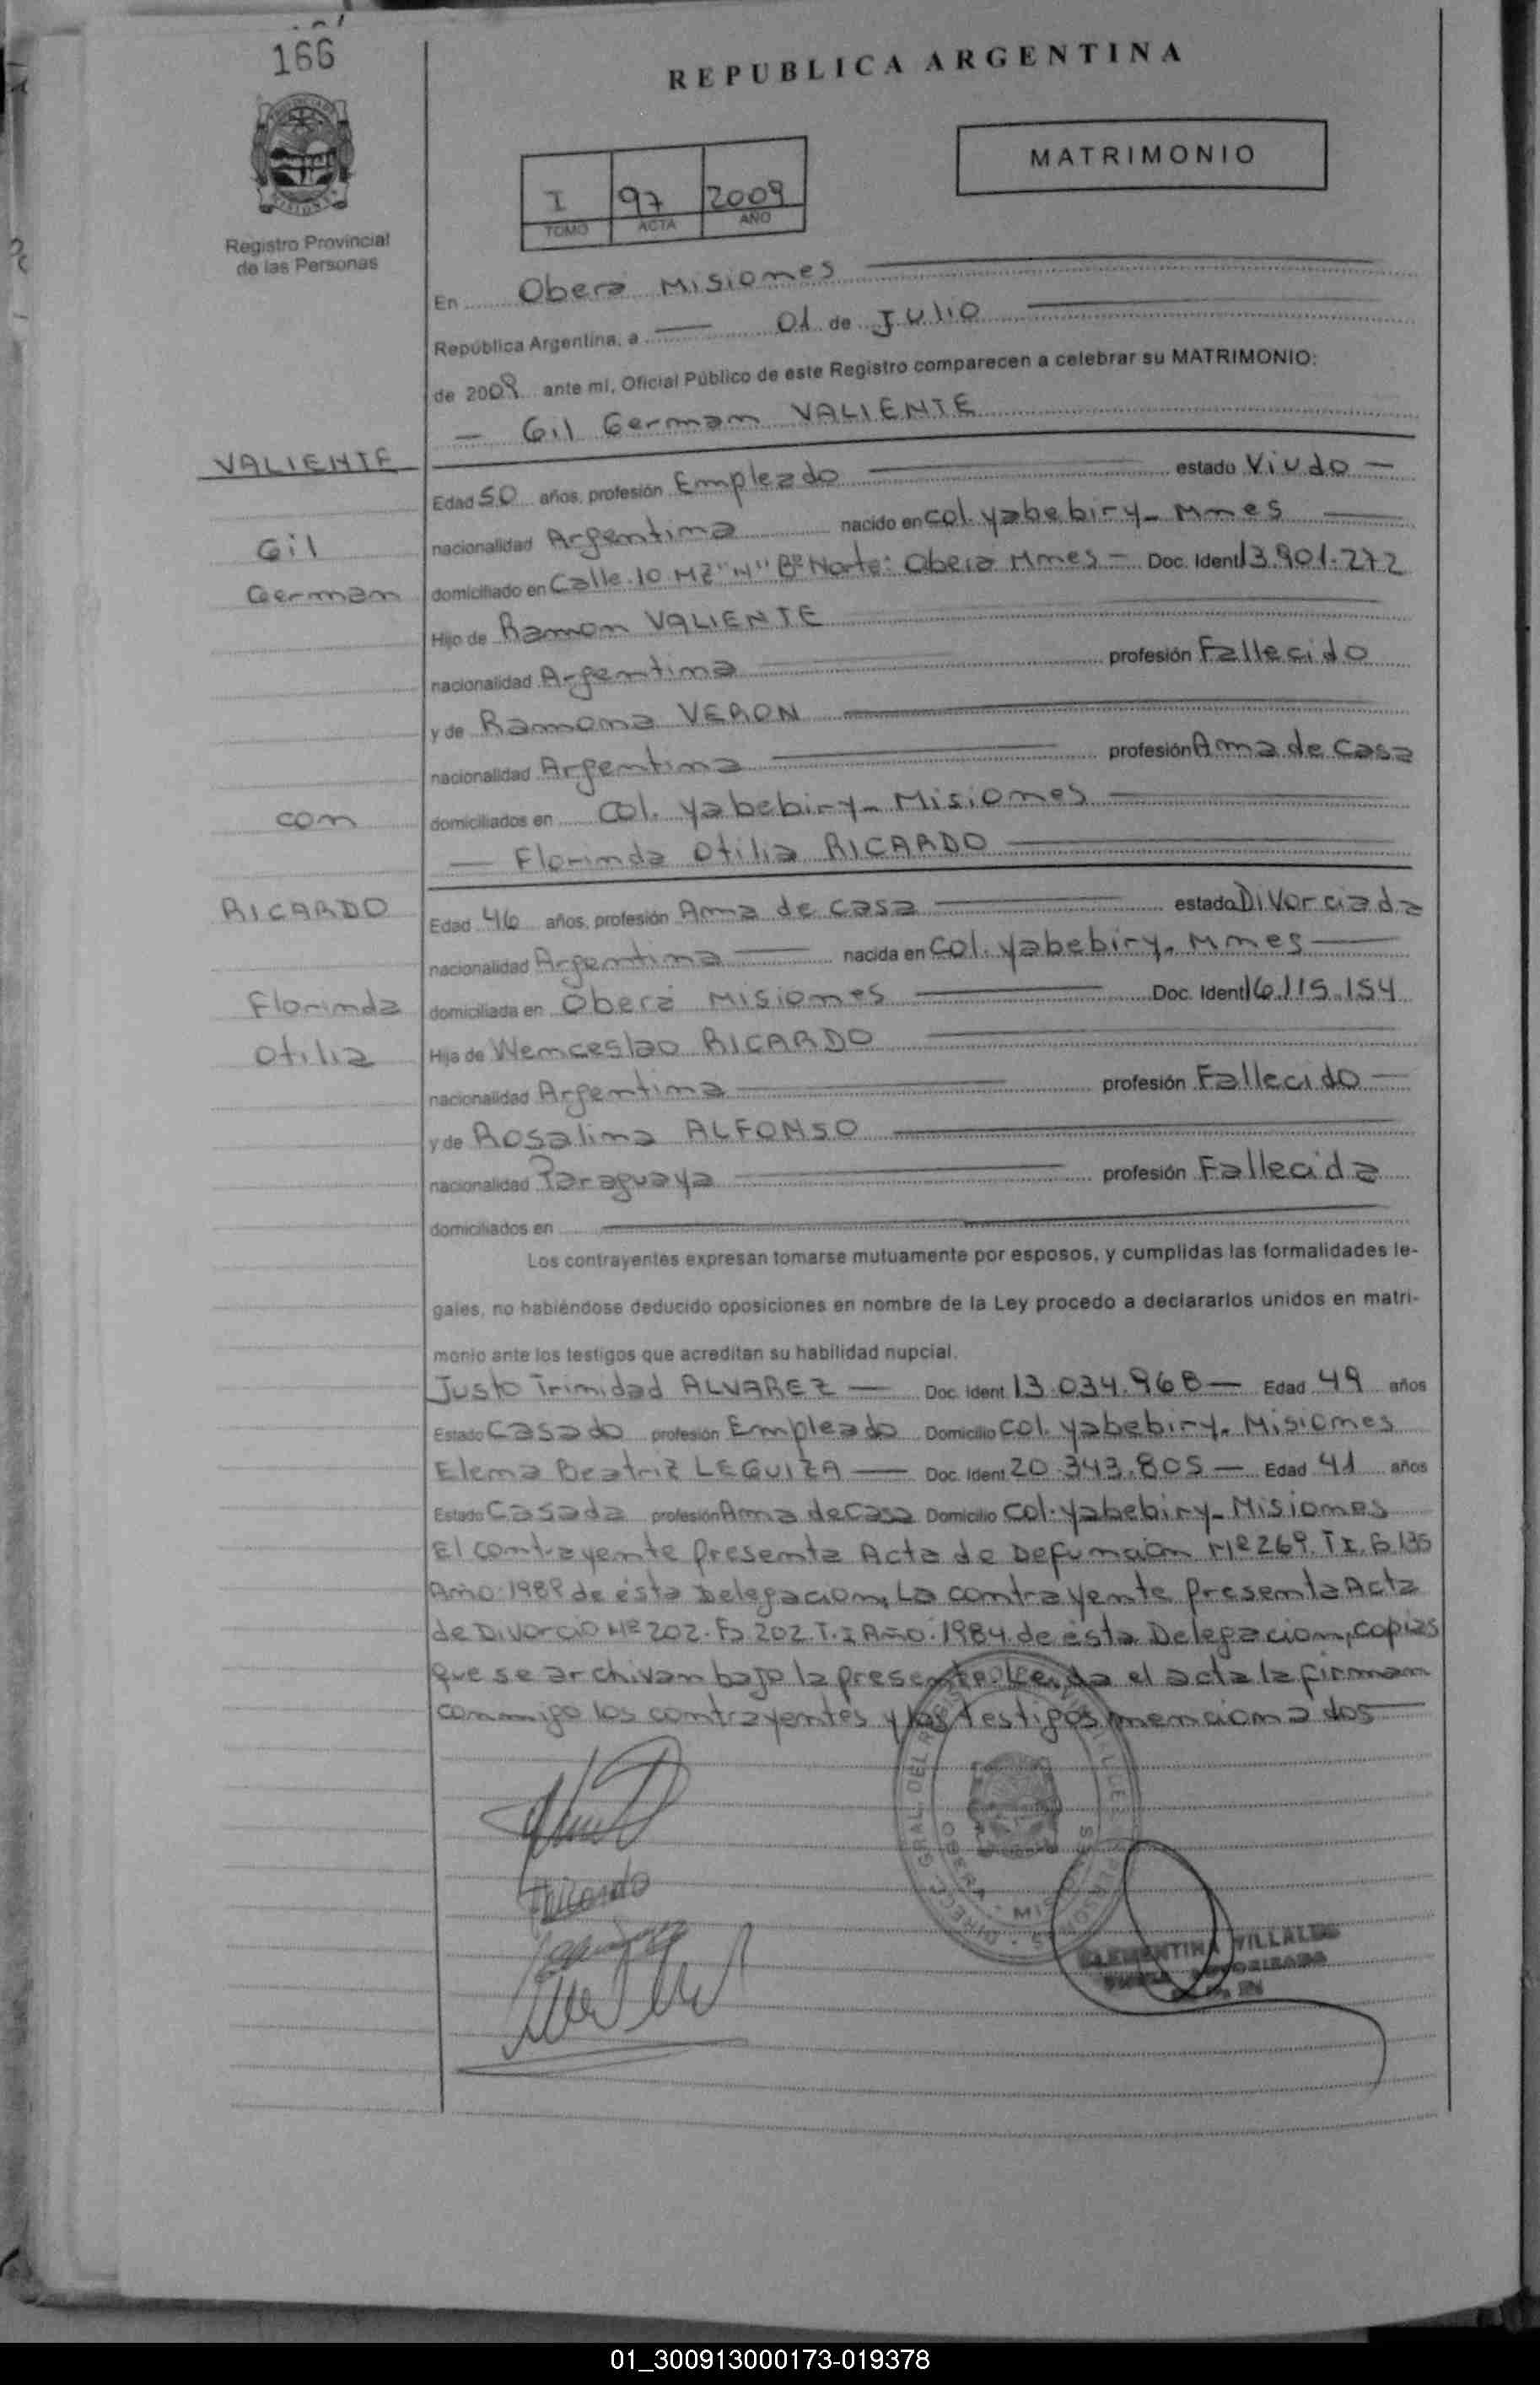 166
REPUBLICA ARGENTINA
MATRIMONIO
I 97 2009
TOMO ACTA AÑO
Registro Provincial
de las Personas
En Obera Misiones
República Argentina, a 01 de Julio
de 2009 ante mi, Oficial Público de este Registro comparecen a celebrar su MATRIMONIO:
— Gil German VALIENTE
VALIENTE
Edad 50 años, profesión Empleado estado Viudo —
Gil
nacionalidad Argentina nacido en Col. Yabebiry - Mnes
German
domiciliado en Calle 10 MZ "N" Bº Norte: Obera Mnes — Doc. Ident 13.901.272
Hijo de Ramon VALIENTE
nacionalidad Argentina profesión Fallecido
y de Ramona VERON
nacionalidad Argentina profesión Ama de Casa
con
domiciliados en Col. Yabebiry - Misiones
— Florinda Otilia RICARDO
RICARDO
Edad 46 años, profesión Ama de casa estado Divorciada
nacionalidad Argentina nacida en Col. Yabebiry. Mnes
Florinda
domiciliada en Oberá Misiones Doc. Ident 16.115.154
Otilia
Hija de Wenceslao RICARDO
nacionalidad Argentina profesión Fallecido —
y de Rosalina ALFONSO
nacionalidad Paraguaya profesión Fallecida
domiciliados en
Los contrayentes expresan tomarse mutuamente por esposos, y cumplidas las formalidades le-
gales, no habiéndose deducido oposiciones en nombre de la Ley procedo a declararlos unidos en matri-
monio ante los testigos que acreditan su habilidad nupcial.
Justo Trinidad ALVAREZ — Doc. Ident 13.034.968 — Edad 49 años
Estado Casado profesión Empleado Domicilio Col. Yabebiry. Misiones
Elena Beatriz LEGUIZA — Doc. Ident 20.343.805 — Edad 41 años
Estado Casada profesión Ama de Casa Domicilio Col. Yabebiry - Misiones
El contrayente presenta Acta de Defunción Nº 269. T I. Fº 135
Año: 1989 de ésta Delegacion, La contrayente presenta Acta
de Divorcio Nº 202. Fº 202. T. I Año: 1984 de ésta Delegacion, copias
que se archivan bajo la presente. Leida el acta la firman
conmigo los contrayentes y los testigos mencionados
OBERA - MISIONES
CLEMENTINA VILLALBA
01_300913000173-019378